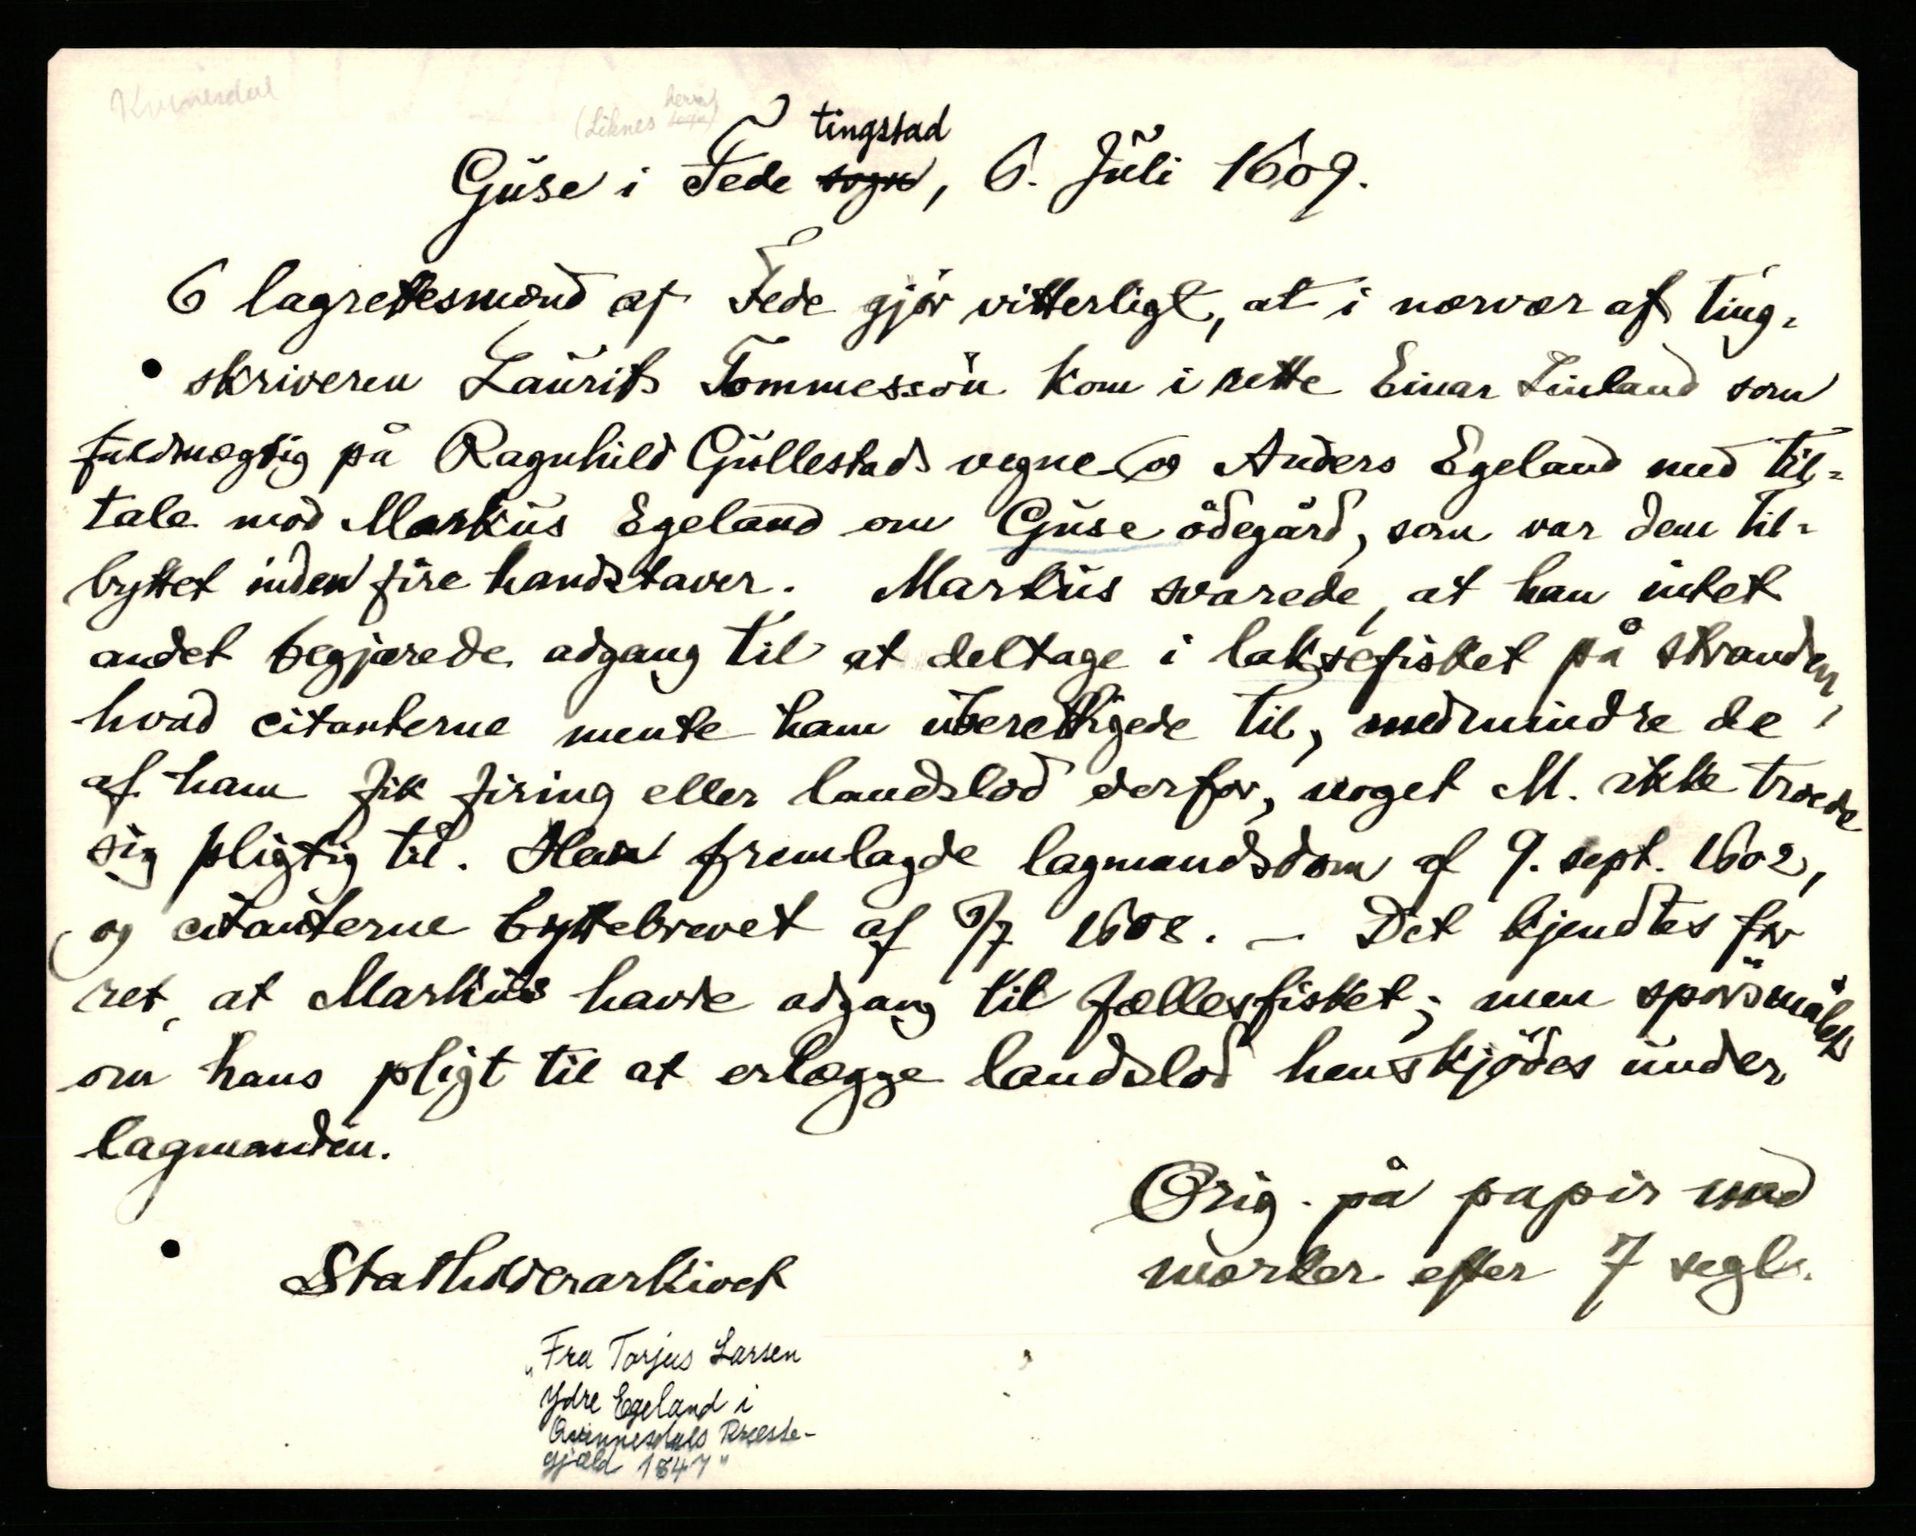 Kvinesdal
(Liknes sogn) herred
tingstad
Guse i Fede sogn, 6. Juli 1609.
6 lagrettesmænd af Fede gjör vitterligt, at i nærvær af ting-
skriveren Laurits Tommessön kom i rette Einar Linland som
fuldmægtig på Ragnhild Gullestads vegne og Anders Egeland med til-
tale mod Markus Egeland om Guse ödegård, som var dem til-
byttet inden fire handstaver. Markus svarede, at han intet
andet begjærede adgang til at deltage i laksefisket på stranden,
hvad citanterne mente ham uberettigede til, medmindre de
af ham fik firing eller landslod derfor, noget M. ikke troede
sig pligtig til. Han fremlagde lagmandsdom af 9. sept. 1602,
og citanterne byttebrevet af 8/7 1608. — Det kjendtes for
ret, at Markus havde adgang til fællesfisket; men spörsmålet
om hans pligt til at erlægge landslod henskjödes under
lagmanden.
Orig. på papir med
mærker efter 7 segl.
Statholderarkivet
"Fra Torjus Larsen
Ydre Egeland i
Qvinnesdals Præste-
gjæld 1847"